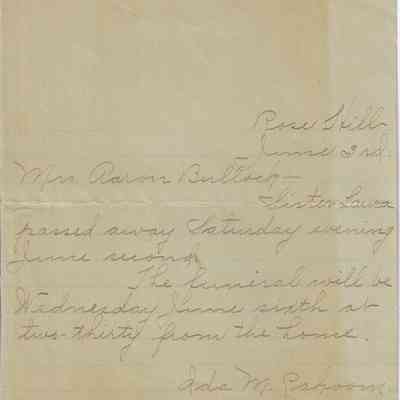 Rose Hill
June 3rd.
Mrs Aaron Bullock—
Sister Laura
passed away Saturday evening
June second
The funeral will be
Wednesday June sixth at
two-thirty from the home.
Ada M.